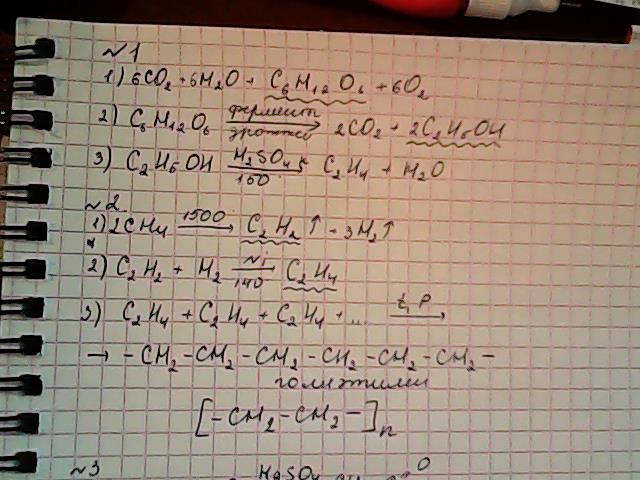 ~1
1) 6CO2 + 6H2O + C6H12O6 + 6O2
2) C6H12O6 ферменты дрожжей 2CO2 + 2C2H5OH
3) C2H5OH H2SO4 к 160 C2H4 + H2O
~2
1) 2CH4 1500 → C2H2 ↑ - 3H2 ↑
2) C2H2 + H2 Ni 140 → C2H4
3) C2H4 + C2H4 + C2H4 + ... t, P →
→ - CH2 - CH2 - CH2 - CH2 - CH2 - CH2 -
полиэтилен
[- CH2 - CH2 -]n
~3
H2SO4